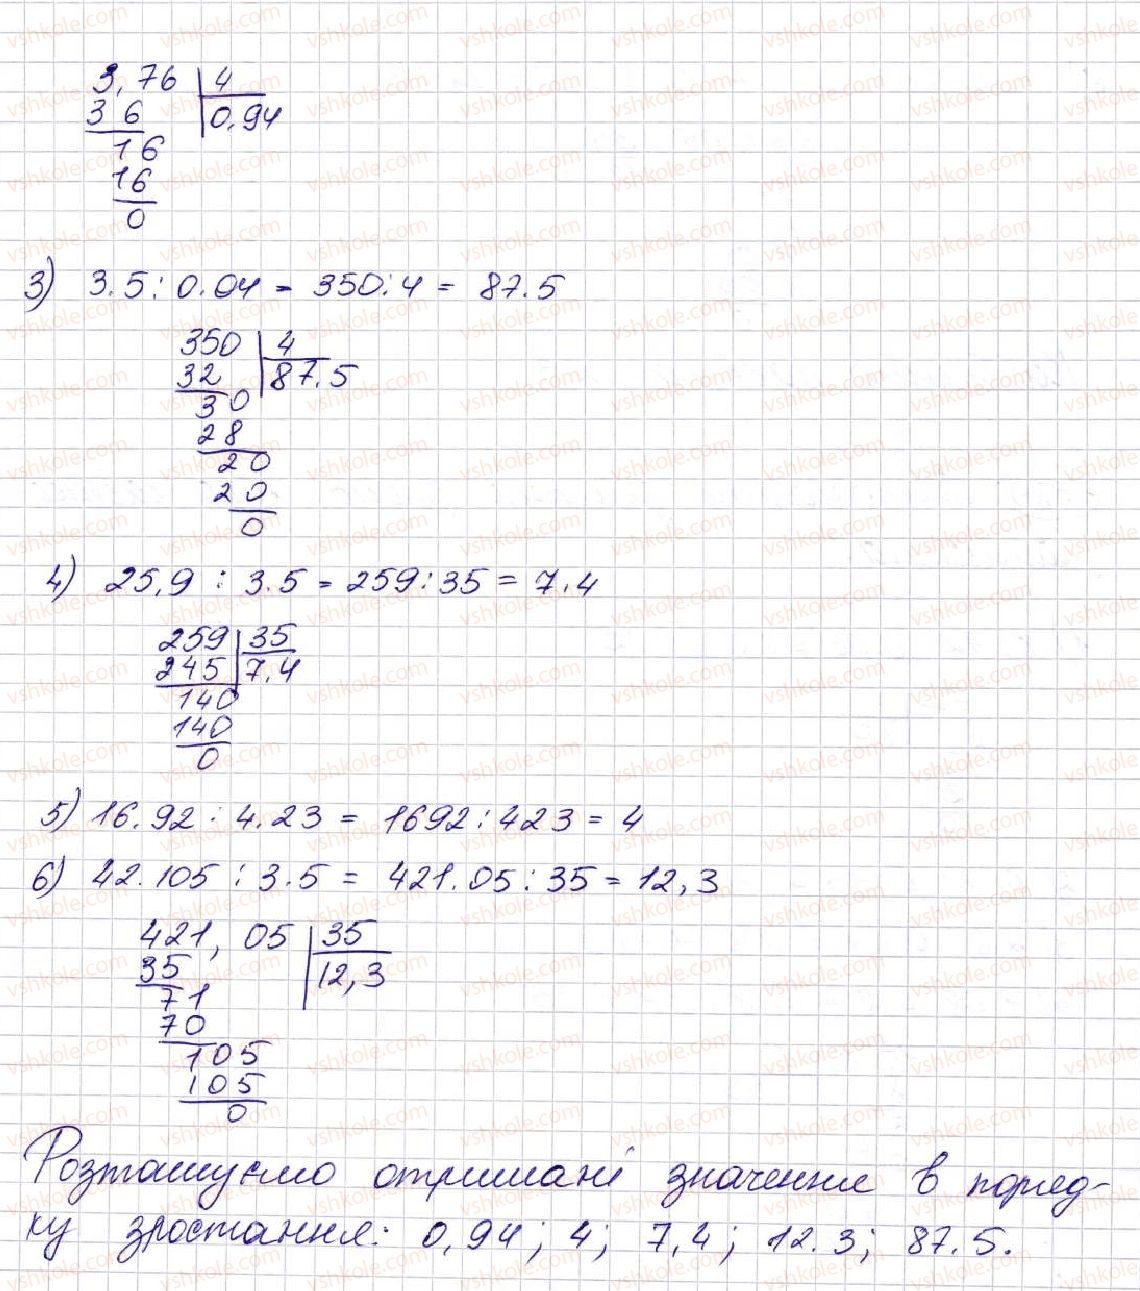 3,76 | 4
3 6 | 0.94
16
16
0
3) 3.5 : 0.04 = 350 : 4 = 87.5
350 | 4
32 | 87.5
30
28
20
20
0
4) 25,9 : 3.5 = 259 : 35 = 7.4
259 | 35
245 | 7.4
140
140
0
5) 16.92 : 4.23 = 1692 : 423 = 4
6) 42.105 : 3.5 = 421.05 : 35 = 12,3
421, 05 | 35
35 | 12,3
71
70
105
105
0
Розташуємо отримані значення в поряд-
ку зростання: 0,94; 4; 7,4; 12.3; 87.5.
vshkole.com